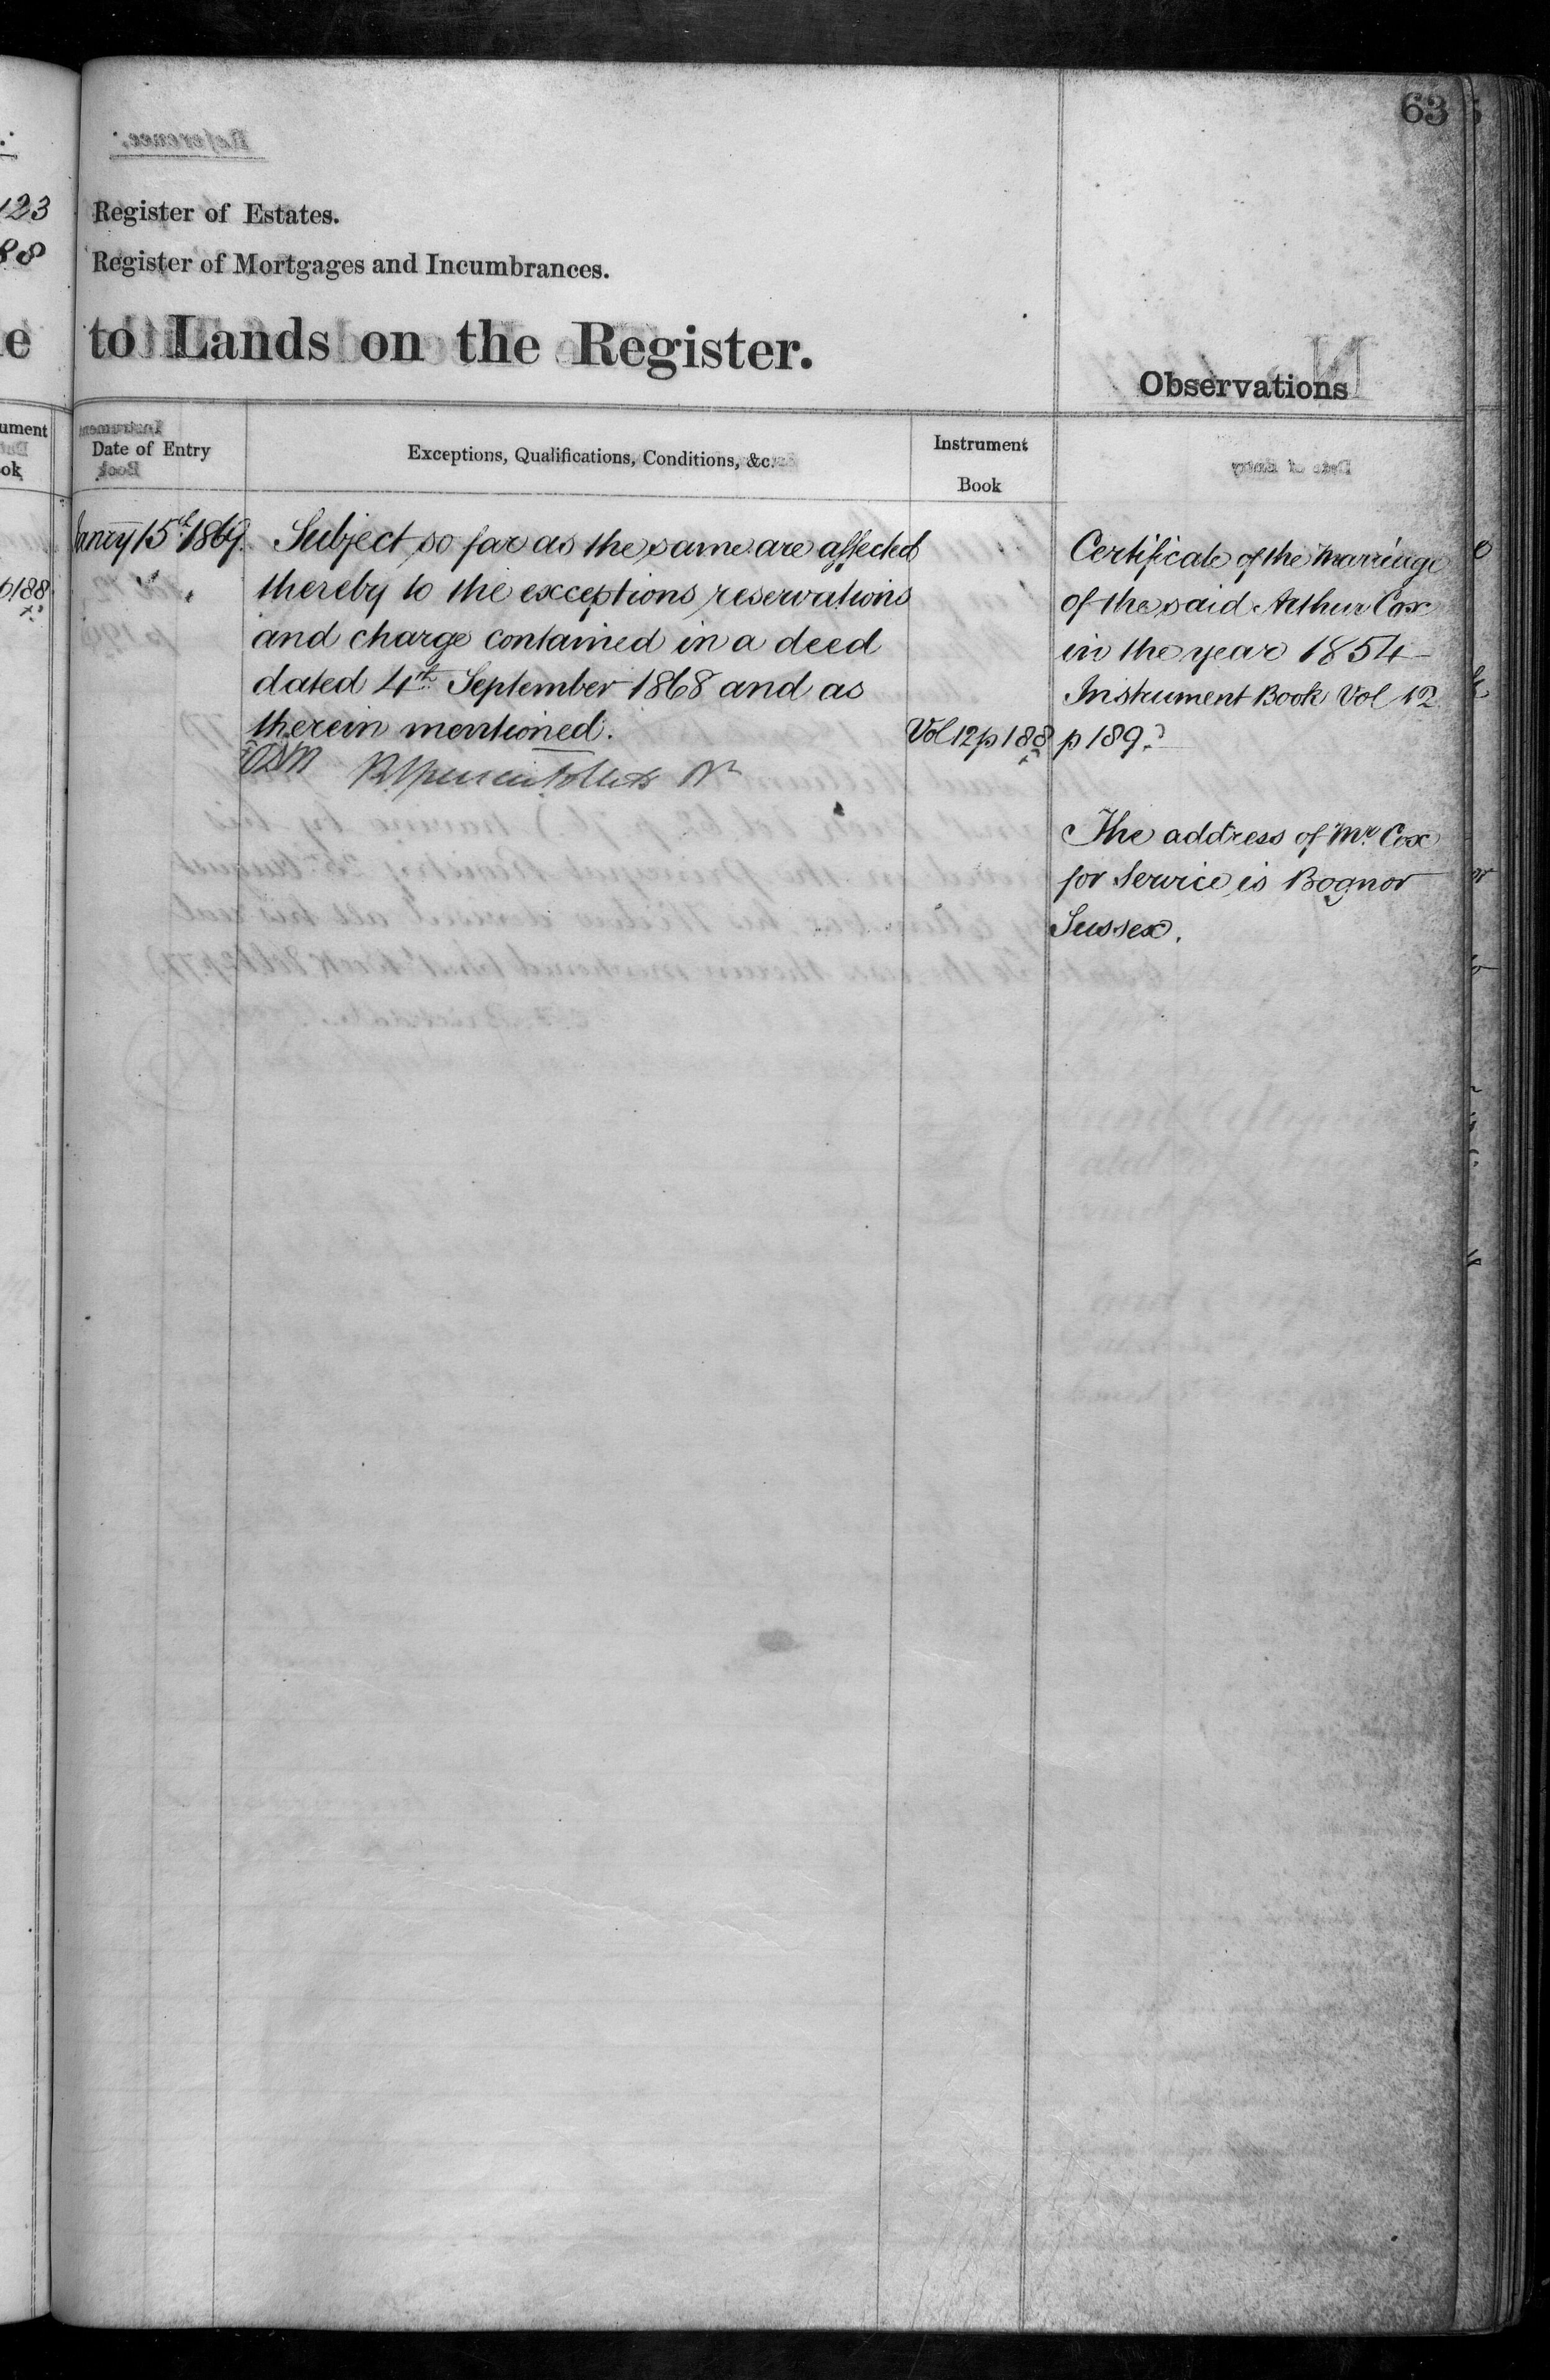 63
123
88
Register of Estates.
Register of Mortgages and Incumbrances.
to Lands on the Register.
Observations
Date of Entry
Exceptions, Qualifications, Conditions, &c.
Instrument
Book
Janry 15th 1869.
Subject so far as the same are affected
thereby to the exceptions reservations
and charge contained in a deed
dated 4th September 1868 and as
therein mentioned.
Vol 12 p 188
p188
Certificate of the Marriage
of the said Arthur Cox
in the year 1854
Instrument Book Vol 12
p 189.
The address of Mr. Cox
for Service is Bognor
Sussex.